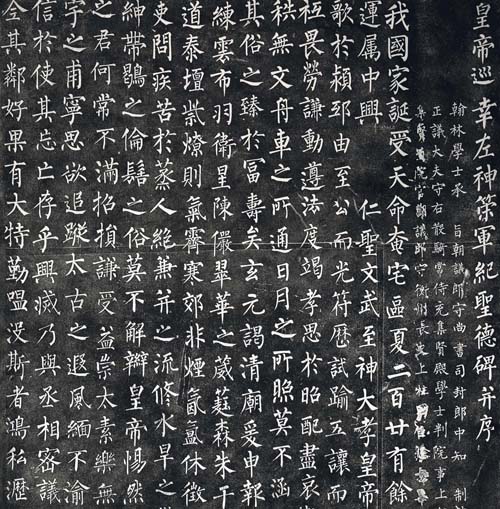 皇帝巡幸左神策軍紀聖德碑并序
翰林學士承 旨朝議郎守尚書司封郎中知 制誥
正議大夫守右散騎常侍充集賢殿學士判院事上
集賢直院官朝議郎守衡州長史上柱國
我國家誕受天命奄宅區夏二百廿有餘
運属中興 仁聖文武至神大孝皇帝
歌於頼邸由至公而光符歷試踰五讓而
極畏勞謙動遵法度竭孝思於昭配盡哀
秩無文舟車之所通日月之所照莫不涵
其俗之臻於富壽矣玄元謁清廟爰申報
練雲布羽衛星陳儼翠華之葳蕤森朱干
道泰壇紫燎則氣霽寒郊非煙氤氳休徵
吏問疾苦於蒸人絕兼并之流修水旱之
紳帶鶡之倫髫之俗莫不解辮皇帝惕然
之君何常不滿招損謙受益崇太素樂無
字之甫寧思欲追蹤太古之遐風緬不渝
信於使其忘亡存乎興滅乃與丞相密議
全其鄰好果有大特勤嗢没斯者鴻私瀝